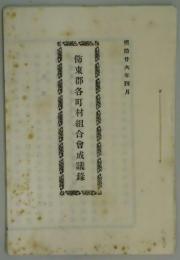 明治廿六年四月
飾東郡各町村組合會成議録